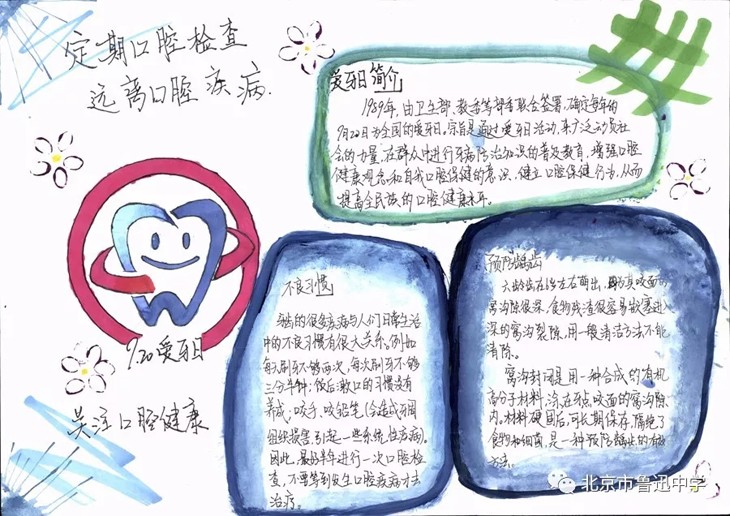 定期口腔检查
远离口腔疾病.
爱牙日简介
1989年,由卫生部、教委等部委联合签署,确定每年的
9月20日为全国的爱牙日。宗旨是通过爱牙活动,来广泛动员社
会的力量,在群众中进行牙病防治知识的普及教育,增强口腔
健康观念和自我口腔保健的意识,建立口腔保健行为,从而
提高全民族的口腔健康水平。
9.20爱牙日
关注口腔健康
不良习惯
的很多疾病与人们日常生活
中的不良习惯有很大关系。例如
每天刷牙不够两次,每次刷牙不够
三分半钟;饭后漱口的习惯没有
养成;咬手、咬铅笔(会造成牙周
组织损害,引起一些系统性疾病)。
因此,最好半年进行一次口腔检
查,不要等到发生口腔疾病才去
治疗。
预防龋齿
六龄齿在6岁左右萌出,因为其咬面的
窝沟很深,食物残渣很容易嵌塞进
深的窝沟裂隙,用一般清洁方法不能
清除。
窝沟封闭是用一种合成的有机
高分子材料,涂在牙齿咬面的窝沟隙
内。材料硬固后,可长期保存,隔绝了
食物和细菌,是一种预防龋齿的有效
方法。
北京市鲁迅中学